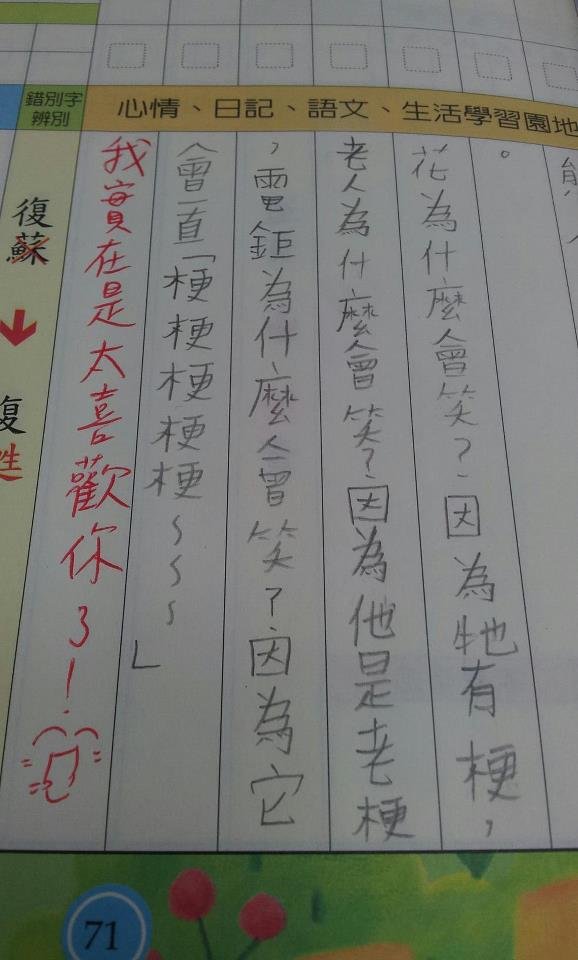 心情、日記、語文、生活學習園地
。花為什麼會笑？因為牠有梗，
老人為什麼會笑？因為他是老梗
，電鉅為什麼會笑？因為它
會一直「梗梗梗梗梗～～～」
我實在是太喜歡你了！
錯別字
辨別
復蘇
復甦
71